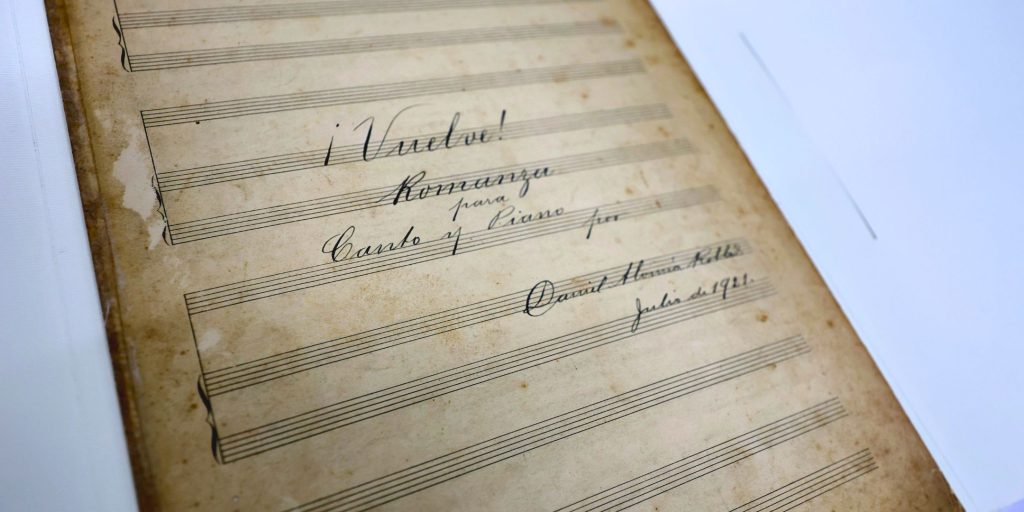 ¡Vuelve!
Romanza
para
Canto y Piano por
Daniel Alomía Robles
Julio de 1921.